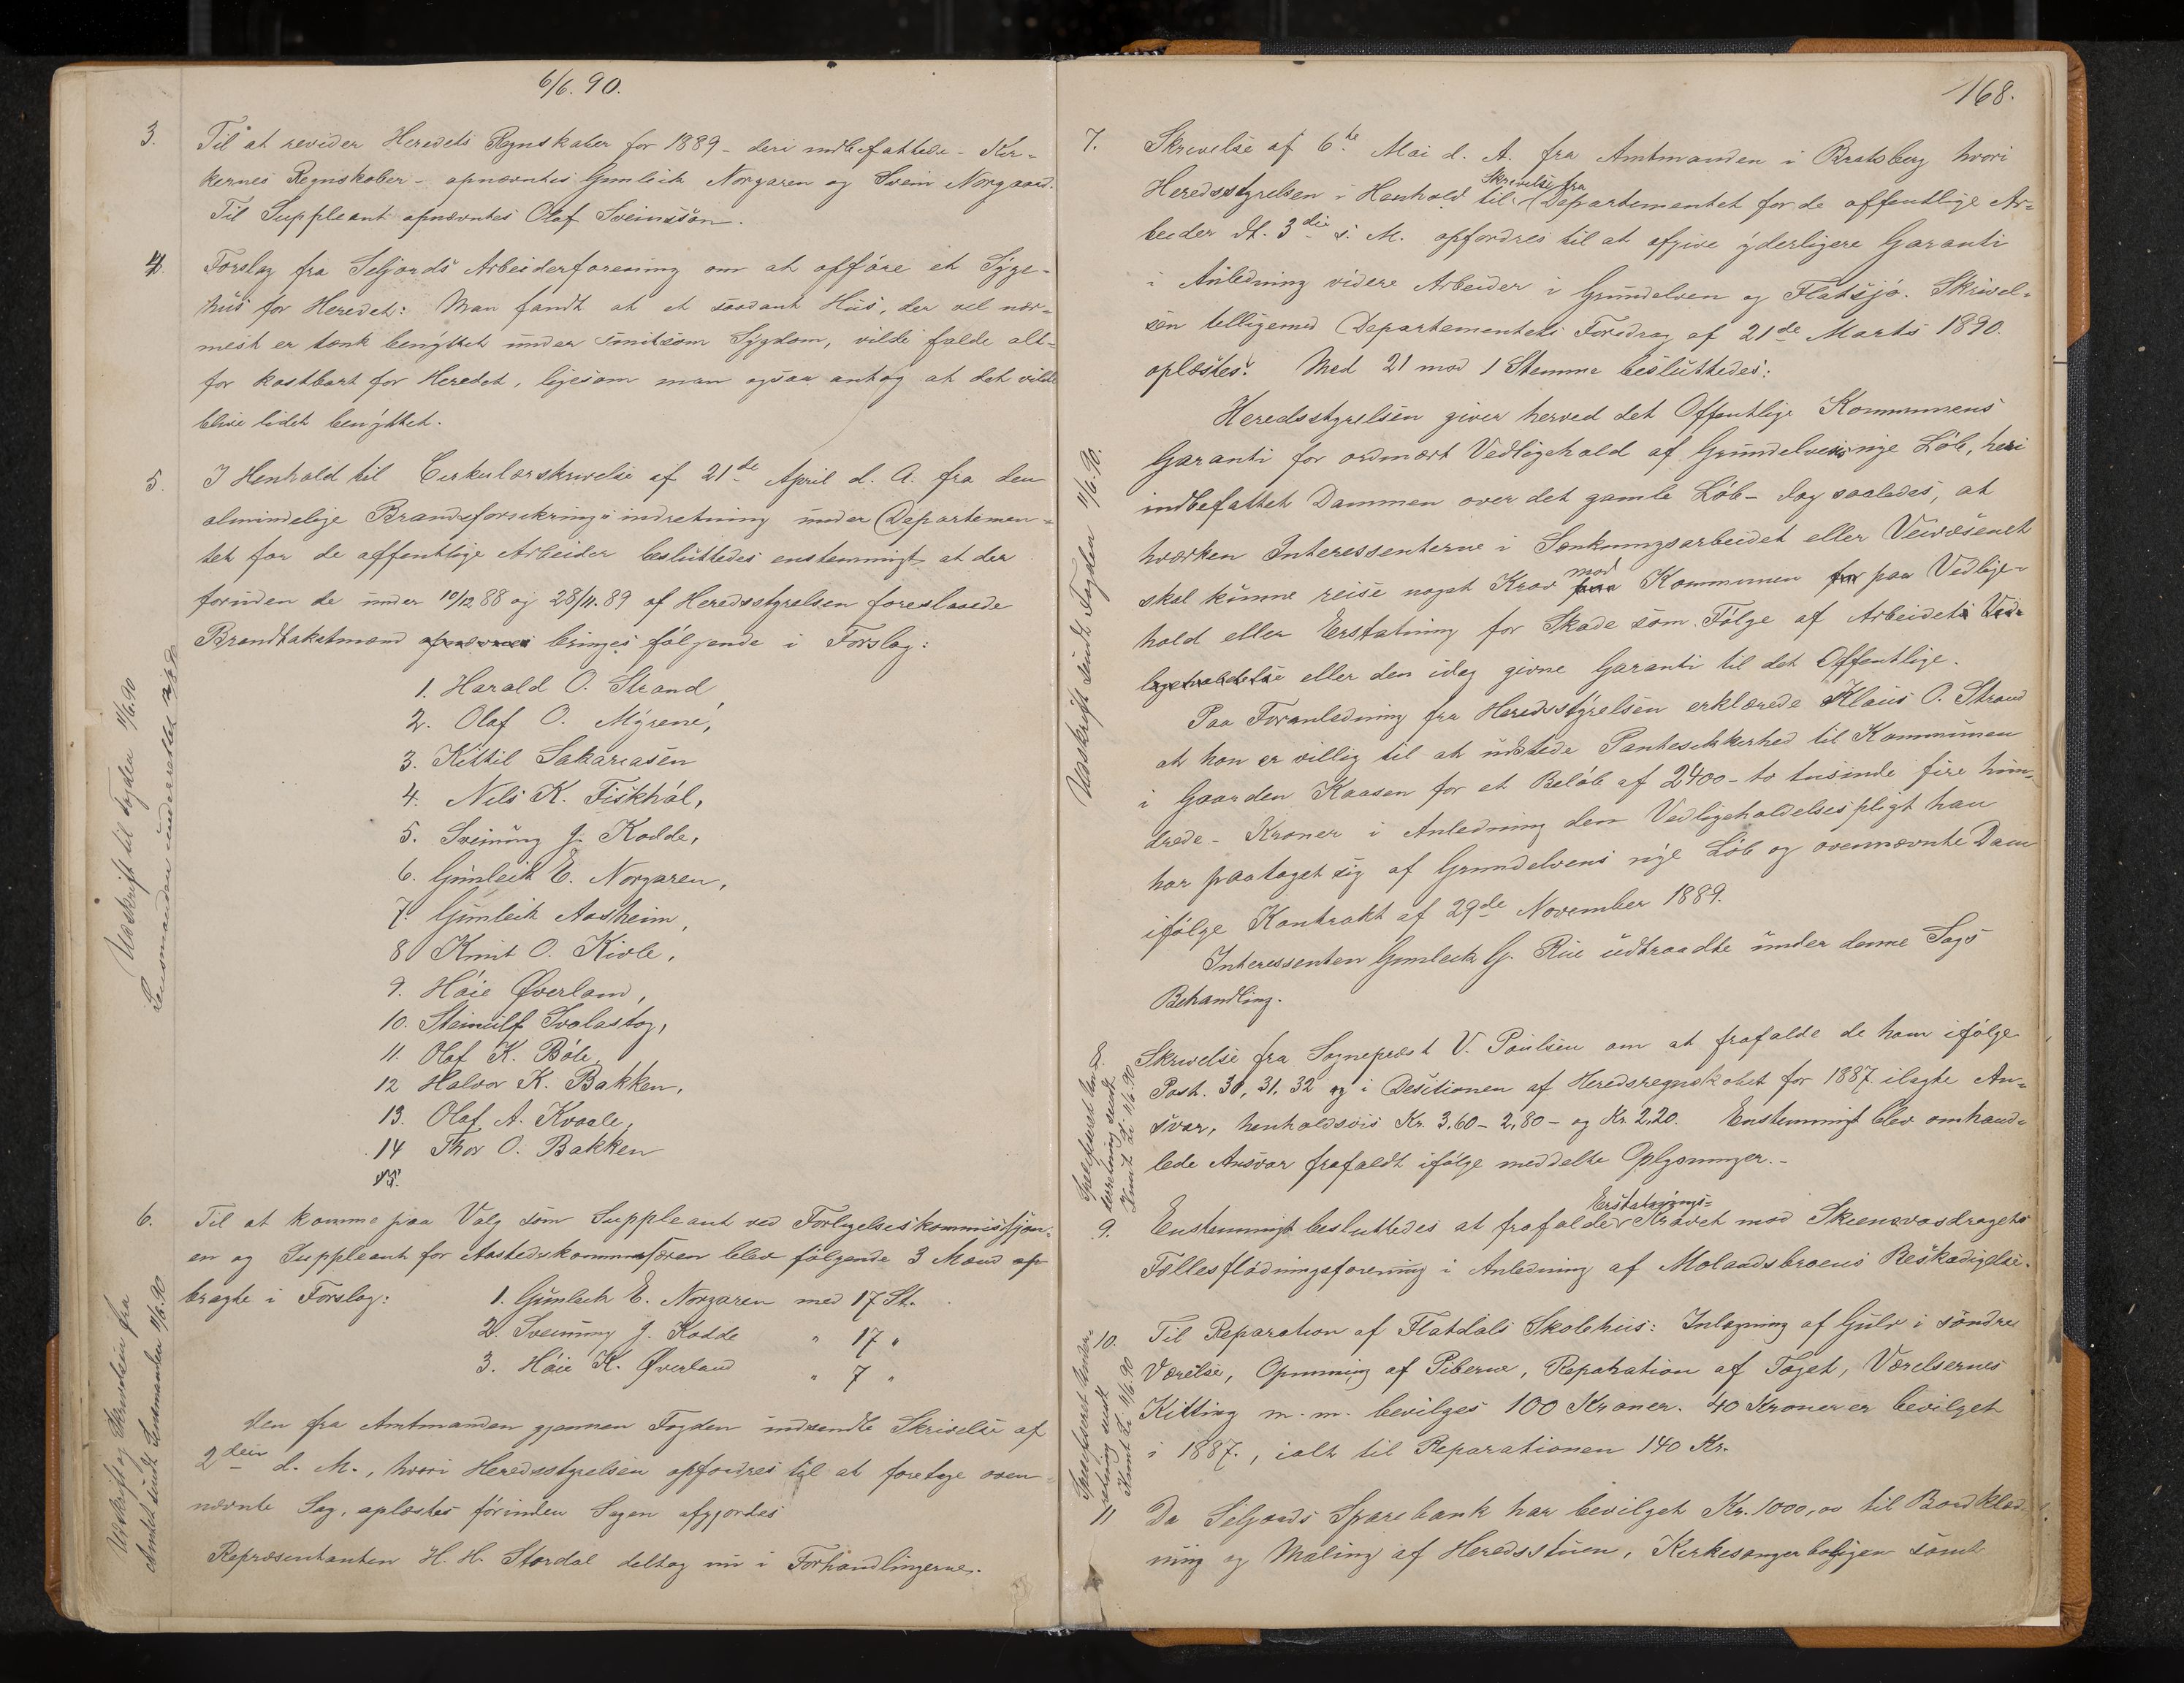 6/6. 90.
3. Til at revidere Heredets Regnskaber for 1889 - deri indbefattede - Kir-
kernes Regnskaber - opnævntes Gunleik Norgaren og Svein Norgaard.
Til Suppleant opnævntes Olaf Sveinssøn.
4. Forslag fra Seljords Arbeiderforening om at opføre et Syge-
hus for Heredet: Man fandt at et saadant Hus, der vel nær-
mest er tænk benyttet under smitsom Sygdom, vilde falde alt-
for kostbart for Heredet, ligesom man ogsaa antog at det vilde
blive lidet benyttet.
5. I Henhold til Cirkulærskrivelse af 21de April d. A. fra den
almindelige Brandforsikrings indretning under Departemen-
tet for de offentlige Arbeider besluttedes enstemmigt at der
foruden de under 10/12 88 og 28/11. 89 af Heredsstyrelsen foreslaaede
Brandtakstmænd opnævnes bringes følgende i Forslag:
1. Harald O. Strand
2. Olaf O. Myrene,
3. Kittil Sakariasen
4. Nils K. Fiskhøl,
5. Sveinung G. Kodde,
6. Gunleik E. Norgaren,
7. Gunleik Aasheim,
8 Knut O. Kivle,
9. Høie Øverland,
10. Steinulf Svalastog,
11. Olaf K. Bøle,
12 Halvor K. Bakken,
13. Olaf A. Kvaale,
14 Thor O. Bakken
15.
Udskrift til Fogden 11/6.90
Lensmanden underrettet
6. Til at komme paa Valg som Suppleant ved Forligelseskommissjon-
en og Suppleant for Aastedskommissæren blev følgende 3 Mænd op-
bragte i Forslag: 1. Gunleik E. Norgaren med 17 St.
2. Sveinung G. Kodde " 17 "
3. Høie K. Øverland " 7 "
Den fra Amtmanden gjennem Fogden indsendte Skrivelse af
2den d. M., hvori Heredsstyrelsen opfordres til at foretage oven-
nævnte Sag, oplæstes forinden Sagen afgjordes
Repræsentanten H. H. Størdal deltog nu i Forhandlingerne.
Udskrift og Skrivelsen fra
Amtet sendt Lensmanden 11/6.90
168.
7. Skrivelse af 6te Mai d. A. fra Amtmanden i Bratsberg hvori
Heredsstyrelsen i Henhold til Skrivelse fra Departementet for de offentlige Ar-
beider dt. 3die s. M. opfordres til at afgive yderligere Garanti
i Anledning videre Arbeider i Grundelven og Flatsjø. Skrivel-
sen telligemed Departementets Foredrag af 21de Marts 1890.
oplæstes. Med 21 mod 1 Stemme besluttedes:
Heredsstyrelsen giver herved det Offentlige Kommunens
Garanti for ordnært Vedligehold af Grundelvens nye Løb, heri
indbefattet Dammen over det gamle Løb - dog saaledes, at
hverken Interessenterne i Sænkningsarbeidet eller Veivæsenet
skal kunne reise noget Krav mod Kommunen for paa Vedlige-
hold eller Erstatning for Skade som Følge af Arbeidets Ved-
ligeholdelse eller den idag givne Garanti til det Offentlige.
Paa Foranledning fra Heredsstyrelsen erklærede Klaus O. Strand
at han er villig til at udstede Pantesikkerhed til Kommunen
i Gaarden Kaasen for et Beløb af 2400 - to tusinde fire hun-
drede - Kroner i Anledning den Vedligeholdelsespligt han
har paataget sig af Grundelvens nye Løb og ovennævnte Dam
ifølge Kontrakt af 29de November 1889.
Interessenten Gunleik G. Rue udtraadte under denne Sags
Behandling.
Udskrift sendt Fogden 11/6.90.
Skrivelse fra Sogneprest V. Poulsen om at frafalde de ham ifølge
Post. 30, 31, 32 og i Desitionen af Heredsregnskabet for 1887 ilagte An-
svar, henholdsvis Kr. 3,60 - 2,80 - og Kr. 2,20. Enstemmigt blev omhand-
lede Ansvar frafaldt ifølge meddelte Oplysninger. -
9. Enstemmigt besluttedes at frafalde Erstatnings- Kravet mod Skiensvasdragets
Fællesflødningsforening i Anledning af Molandsbroens Beskadigelse.
10. Til Reparation af Flatdals Skolehus: Inlægning af Gulv i søndre
Værelse, Opmuring af Piberne, Reparation af Taget, Værelsernes
Kitting m. m. bevilges 100 Kroner. 40 Kroner er bevilget
i 1887., ialt til Reparationen 140 Kr.
11 Da Seljords Sparebank har bevilget Kr. 1000,00 til Bordklæd-
ning og Maling af Heredsstuen, Kirkesangerboligen samt